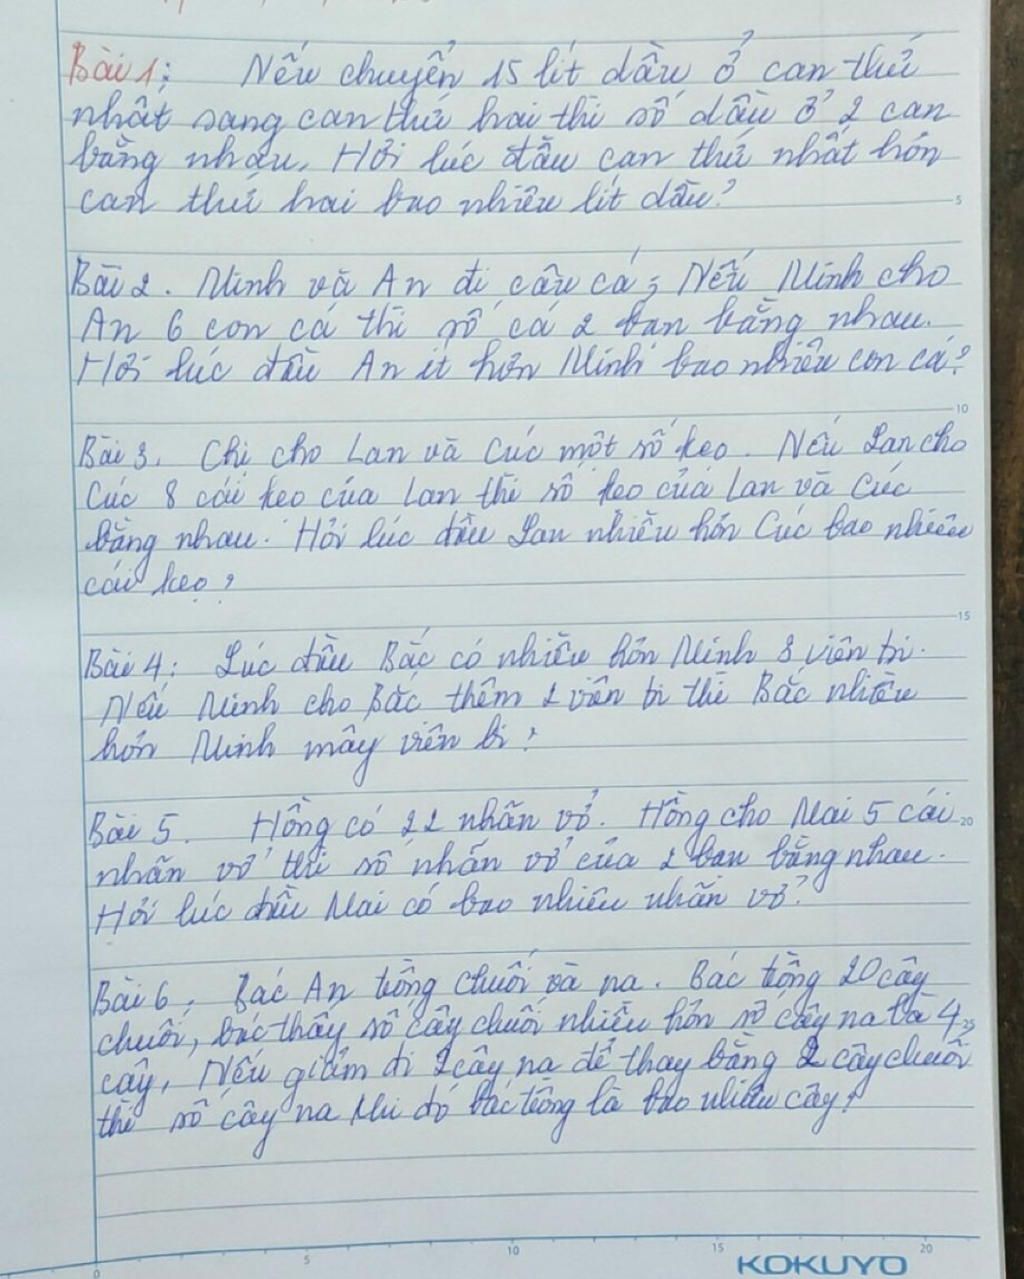 Bài 1: Nếu chuyển 15 lít dầu ở can thứ
nhất sang can thứ hai thì số dầu ở 2 can
bằng nhau. Hỏi lúc đầu can thứ nhất hơn
can thứ hai bao nhiêu lít dầu?
5
Bài 2. Minh và An đi câu cá; Nếu Minh cho
An 6 con cá thì số cá 2 bạn bằng nhau.
Hỏi lúc đầu An ít hơn Minh bao nhiêu con cá?
10
Bài 3. Chị cho Lan và Cúc một số kẹo. Nếu Lan cho
Cúc 8 cái kẹo của Lan thì số kẹo của Lan và Cúc
bằng nhau. Hỏi lúc đầu Lan nhiều hơn Cúc bao nhiêu
cái kẹo?
15
Bài 4: Lúc đầu Bắc có nhiều hơn Minh 8 viên bi.
Nếu Minh cho Bắc thêm 2 viên bi thì Bắc nhiều
hơn Minh mấy viên bi?
Bài 5. Hồng có 22 nhãn vở. Hồng cho Mai 5 cái
20
nhãn vở thì số nhãn vở của 2 bạn bằng nhau.
Hỏi lúc đầu Mai có bao nhiêu nhãn vở?
Bài 6: Bác An trồng chuối và na. Bác trồng 20 cây
chuối, bác thấy số cây chuối nhiều hơn số cây na là 4
25
cây. Nếu giảm đi 2 cây na để thay bằng 2 cây chuối
thì số cây na khi đó bác trồng là bao nhiêu cây?
0 5 10 15 20
KOKUYO